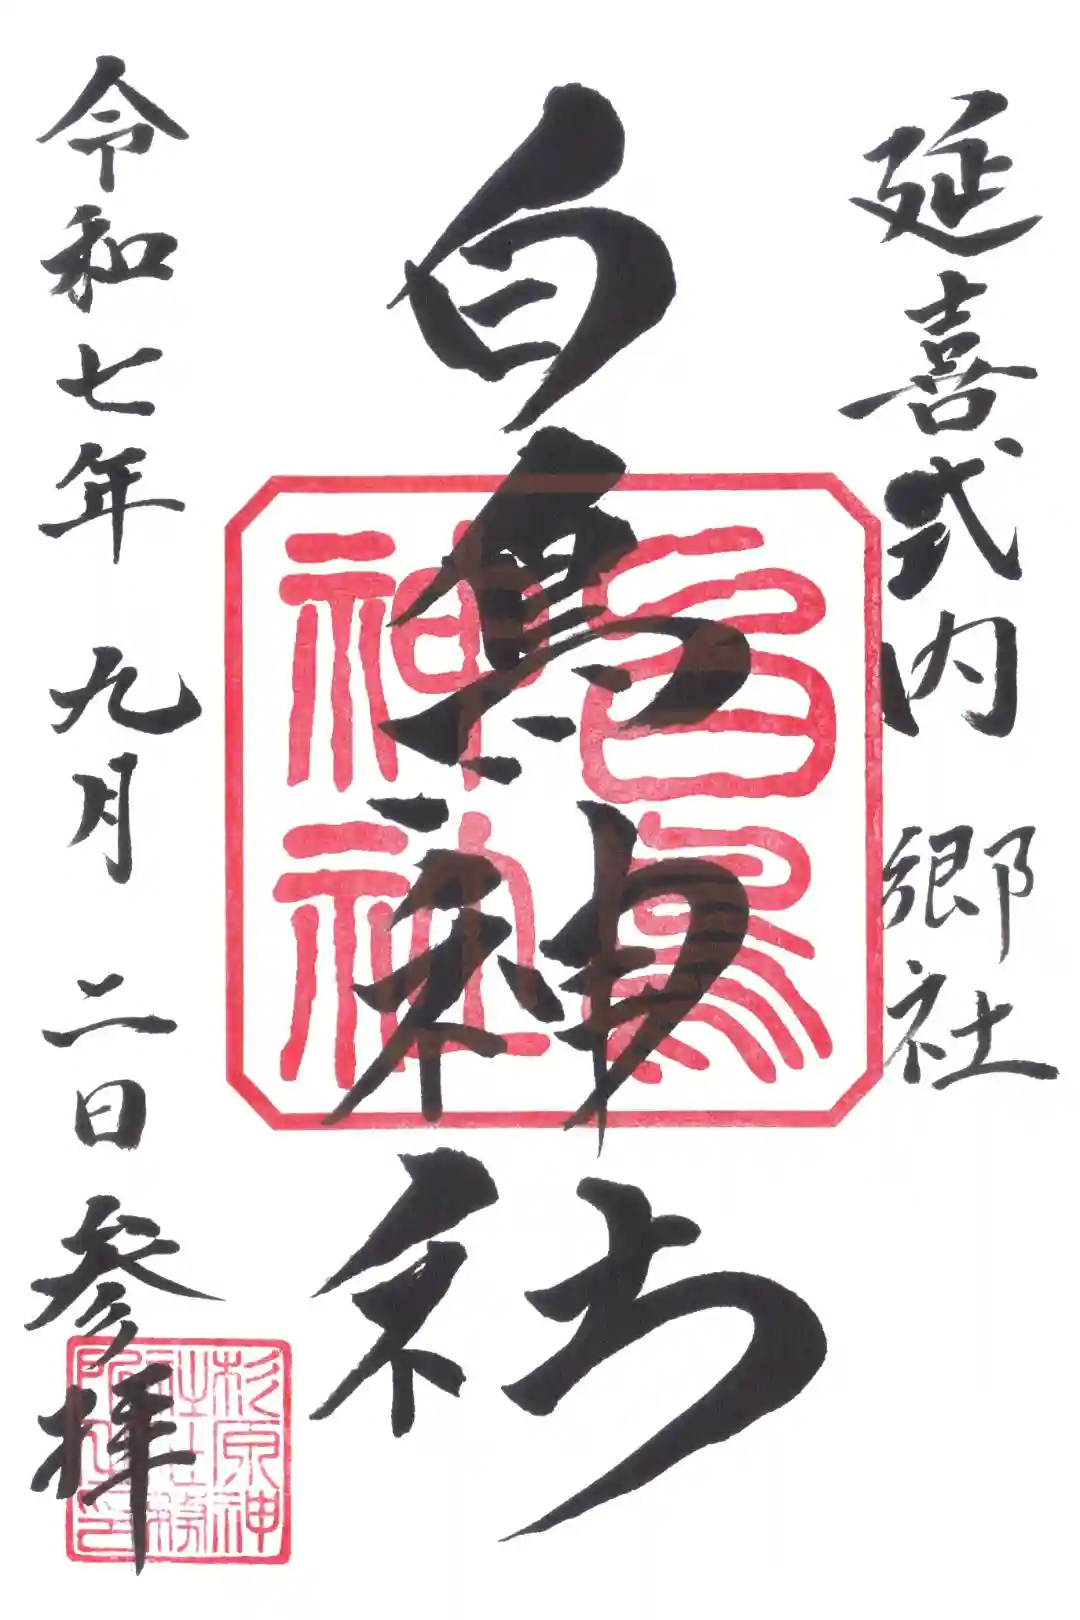 延喜式内 郷社
白鳥神社
令和七年 九月 二日 参拝
白鳥
神社
杉原神
社社務
所之印